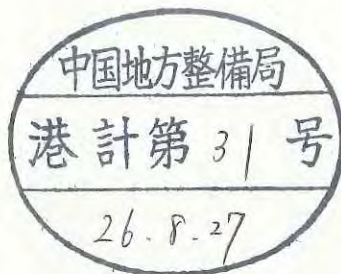 中国地方整備局
港計第31号
26.8.27